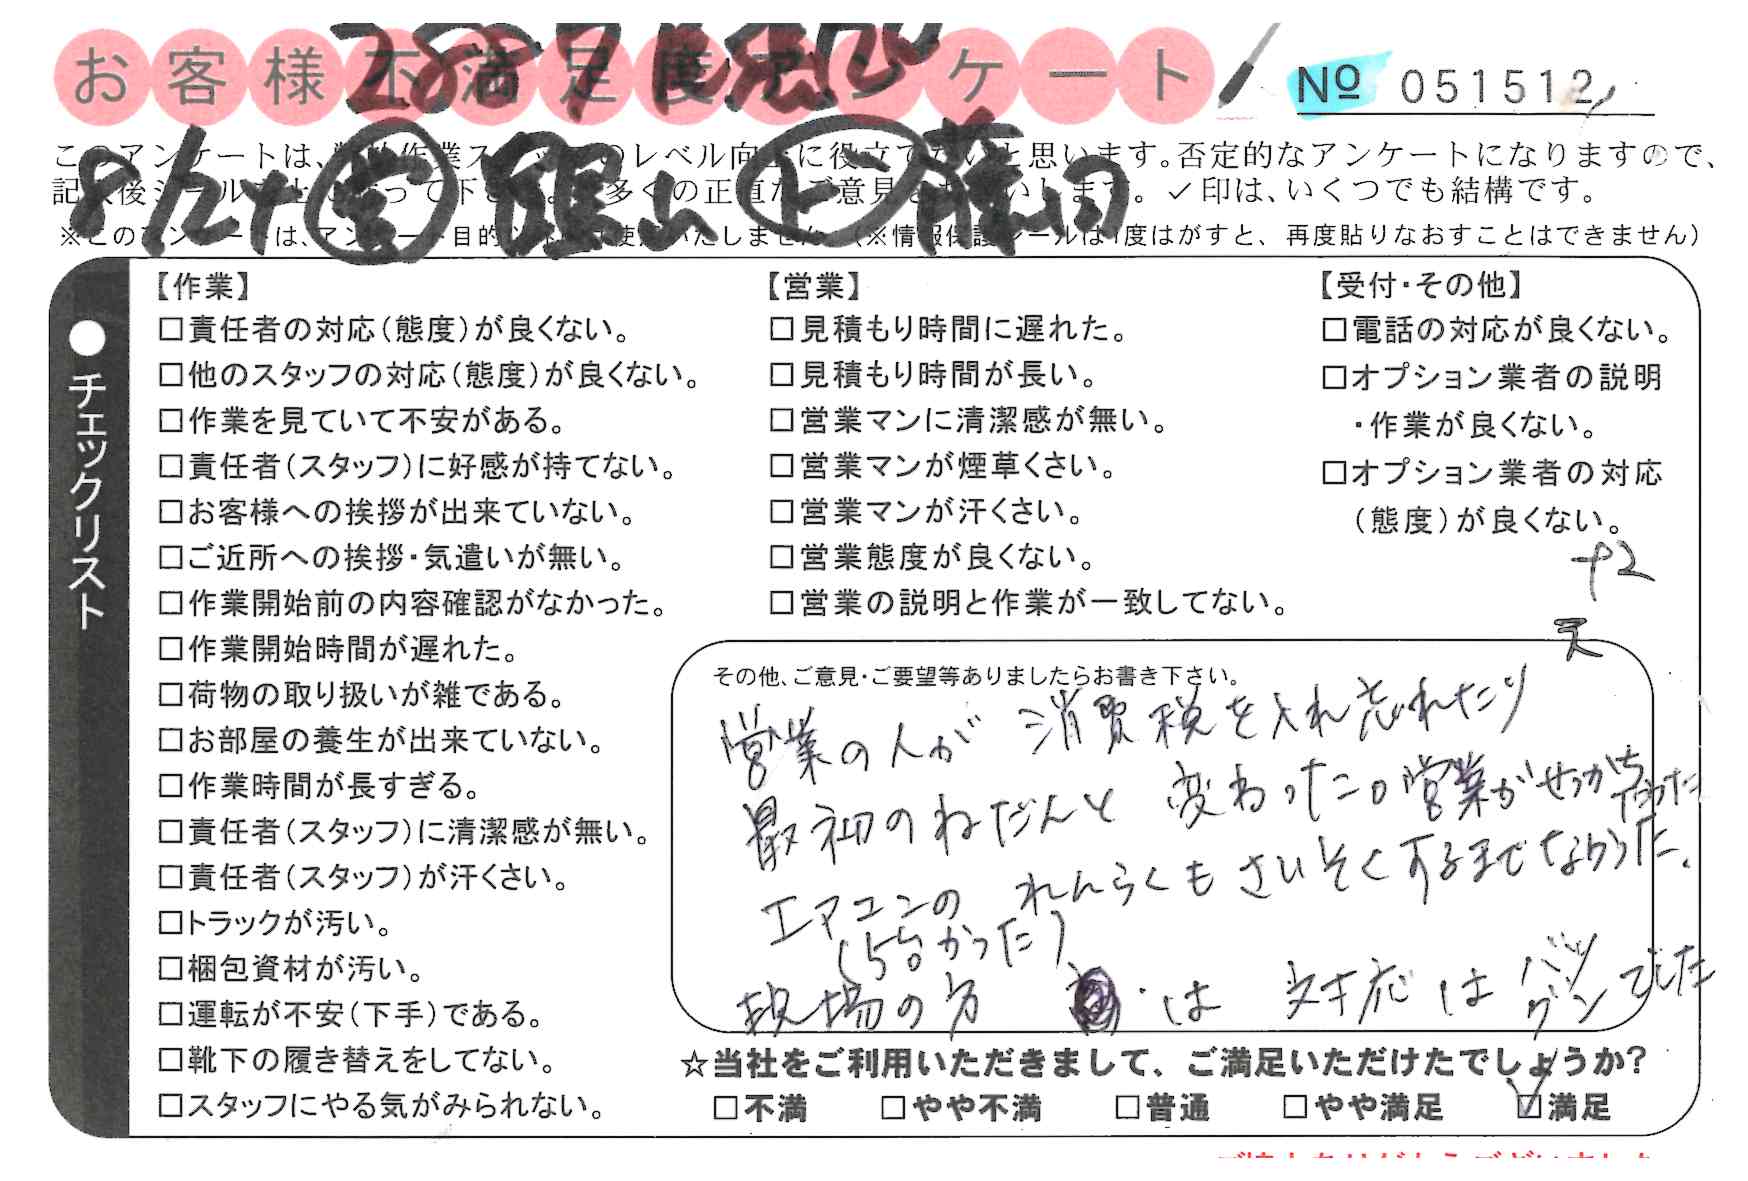 お客様不満足度アンケート
No 051512
8/24 営 館山 ト 藤田
このアンケートは、作業スのレベル向上に役立てたいと思います。否定的なアンケートになりますので、
記後シールって下さ多くの正直なご意見をお願いします。✓印は、いくつでも結構です。
※このアンケートは、アンケート目的以外には使用いたしません。(※情報保護シールは1度はがすと、再度貼りなおすことはできません)
●チェックリスト
【作業】
□責任者の対応(態度)が良くない。
□他のスタッフの対応(態度)が良くない。
□作業を見ていて不安がある。
□責任者(スタッフ)に好感が持てない。
□お客様への挨拶が出来ていない。
□ご近所への挨拶・気遣いが無い。
□作業開始前の内容確認がなかった。
□作業開始時間が遅れた。
□荷物の取り扱いが雑である。
□お部屋の養生が出来ていない。
□作業時間が長すぎる。
□責任者(スタッフ)に清潔感が無い。
□責任者(スタッフ)が汗くさい。
□トラックが汚い。
□梱包資材が汚い。
□運転が不安(下手)である。
□靴下の履き替えをしてない。
□スタッフにやる気がみられない。
【営業】
□見積もり時間に遅れた。
□見積もり時間が長い。
□営業マンに清潔感が無い。
□営業マンが煙草くさい。
□営業マンが汗くさい。
□営業態度が良くない。
□営業の説明と作業が一致してない。
【受付・その他】
□電話の対応が良くない。
□オプション業者の説明
・作業が良くない。
□オプション業者の対応
(態度)が良くない。
その他、ご意見・ご要望等ありましたらお書き下さい。
営業の人が 消費税を入れ忘れたり
最初のねだんと 変わった。営業がせっかちだった
エアコンの れんらくもさいそくするまでなかった。
(5台かった)
現場の方 は 対応は バツグンでした
☆当社をご利用いただきまして、ご満足いただけたでしょうか?
□不満 □やや不満 □普通 □やや満足 ☑満足